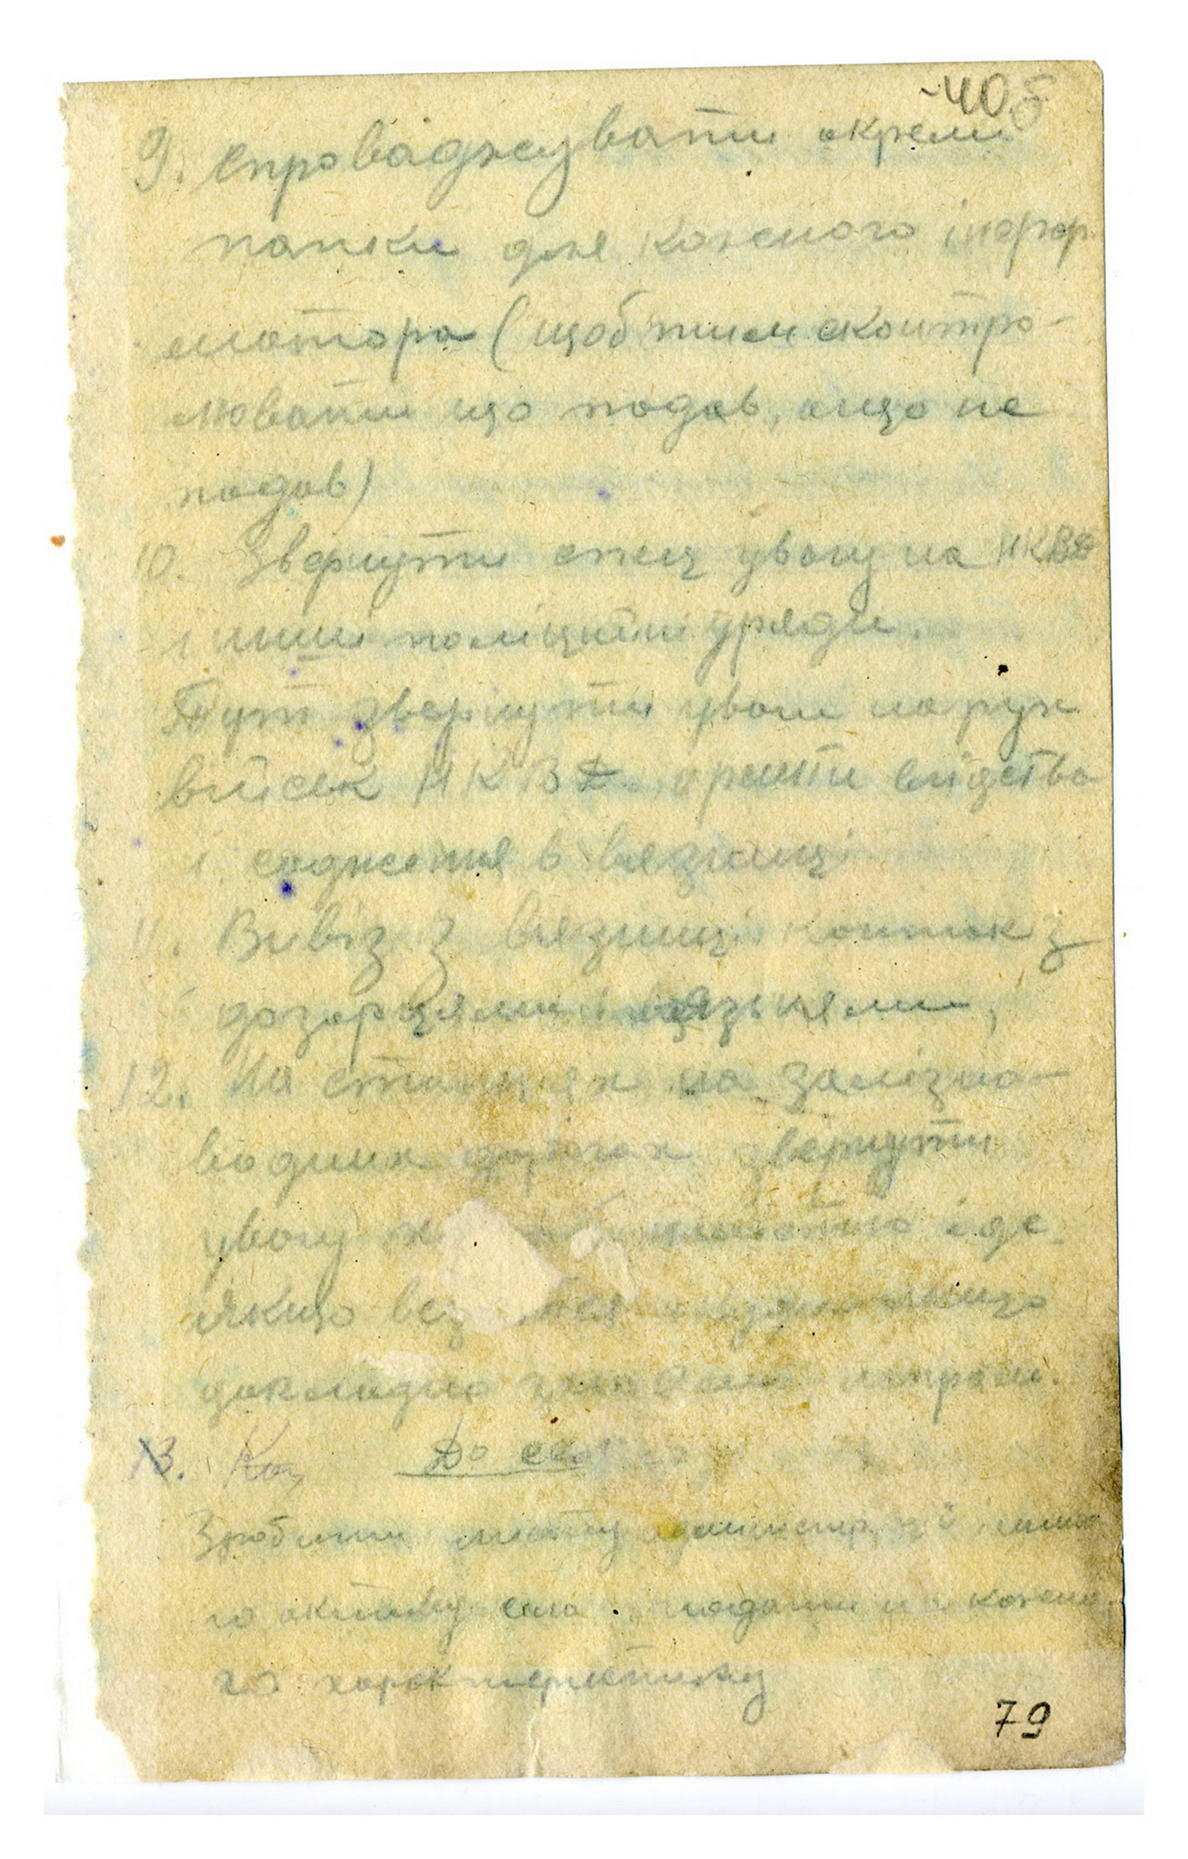 40
9. Спроваджувати окремі
папки для кожного інфор
матора (щоб ним сконтро-
лювати що подав, а що не
подав)
10. Звернути спец увагу на НКВД
і інші поліційні уряди.
Тут звернути уваги на рух
військ НКВД арешти слідства
і садження в вязниці
11. Вивіз з вязниці
дозорцями і вязьнями,
12. На станціях на залізно-
водних дорогах звернути
увагу і де
якщо
докладно напрям.
13. До
Зробити адміністрації
го активу села подати на кожно
го характеристику
79